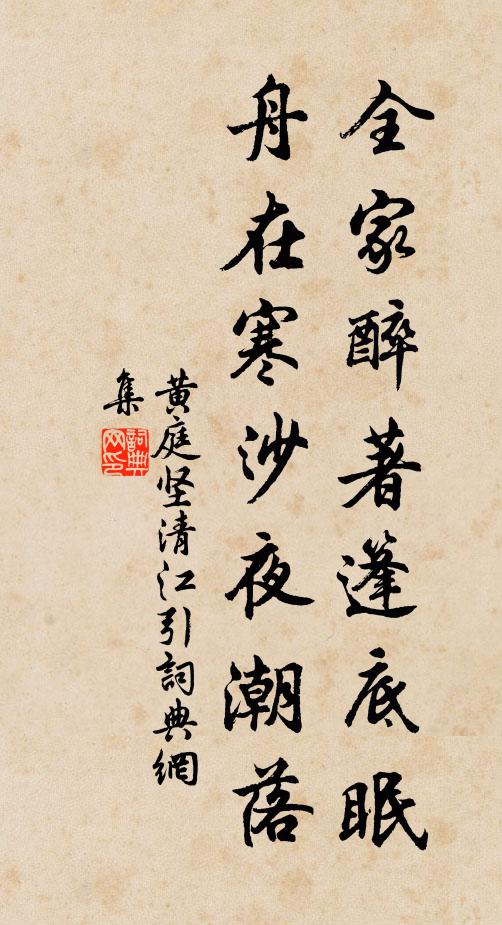 全家醉著篷底眠
舟在寒沙夜潮落
黄庭坚清江引詞典網
集
詞典網印